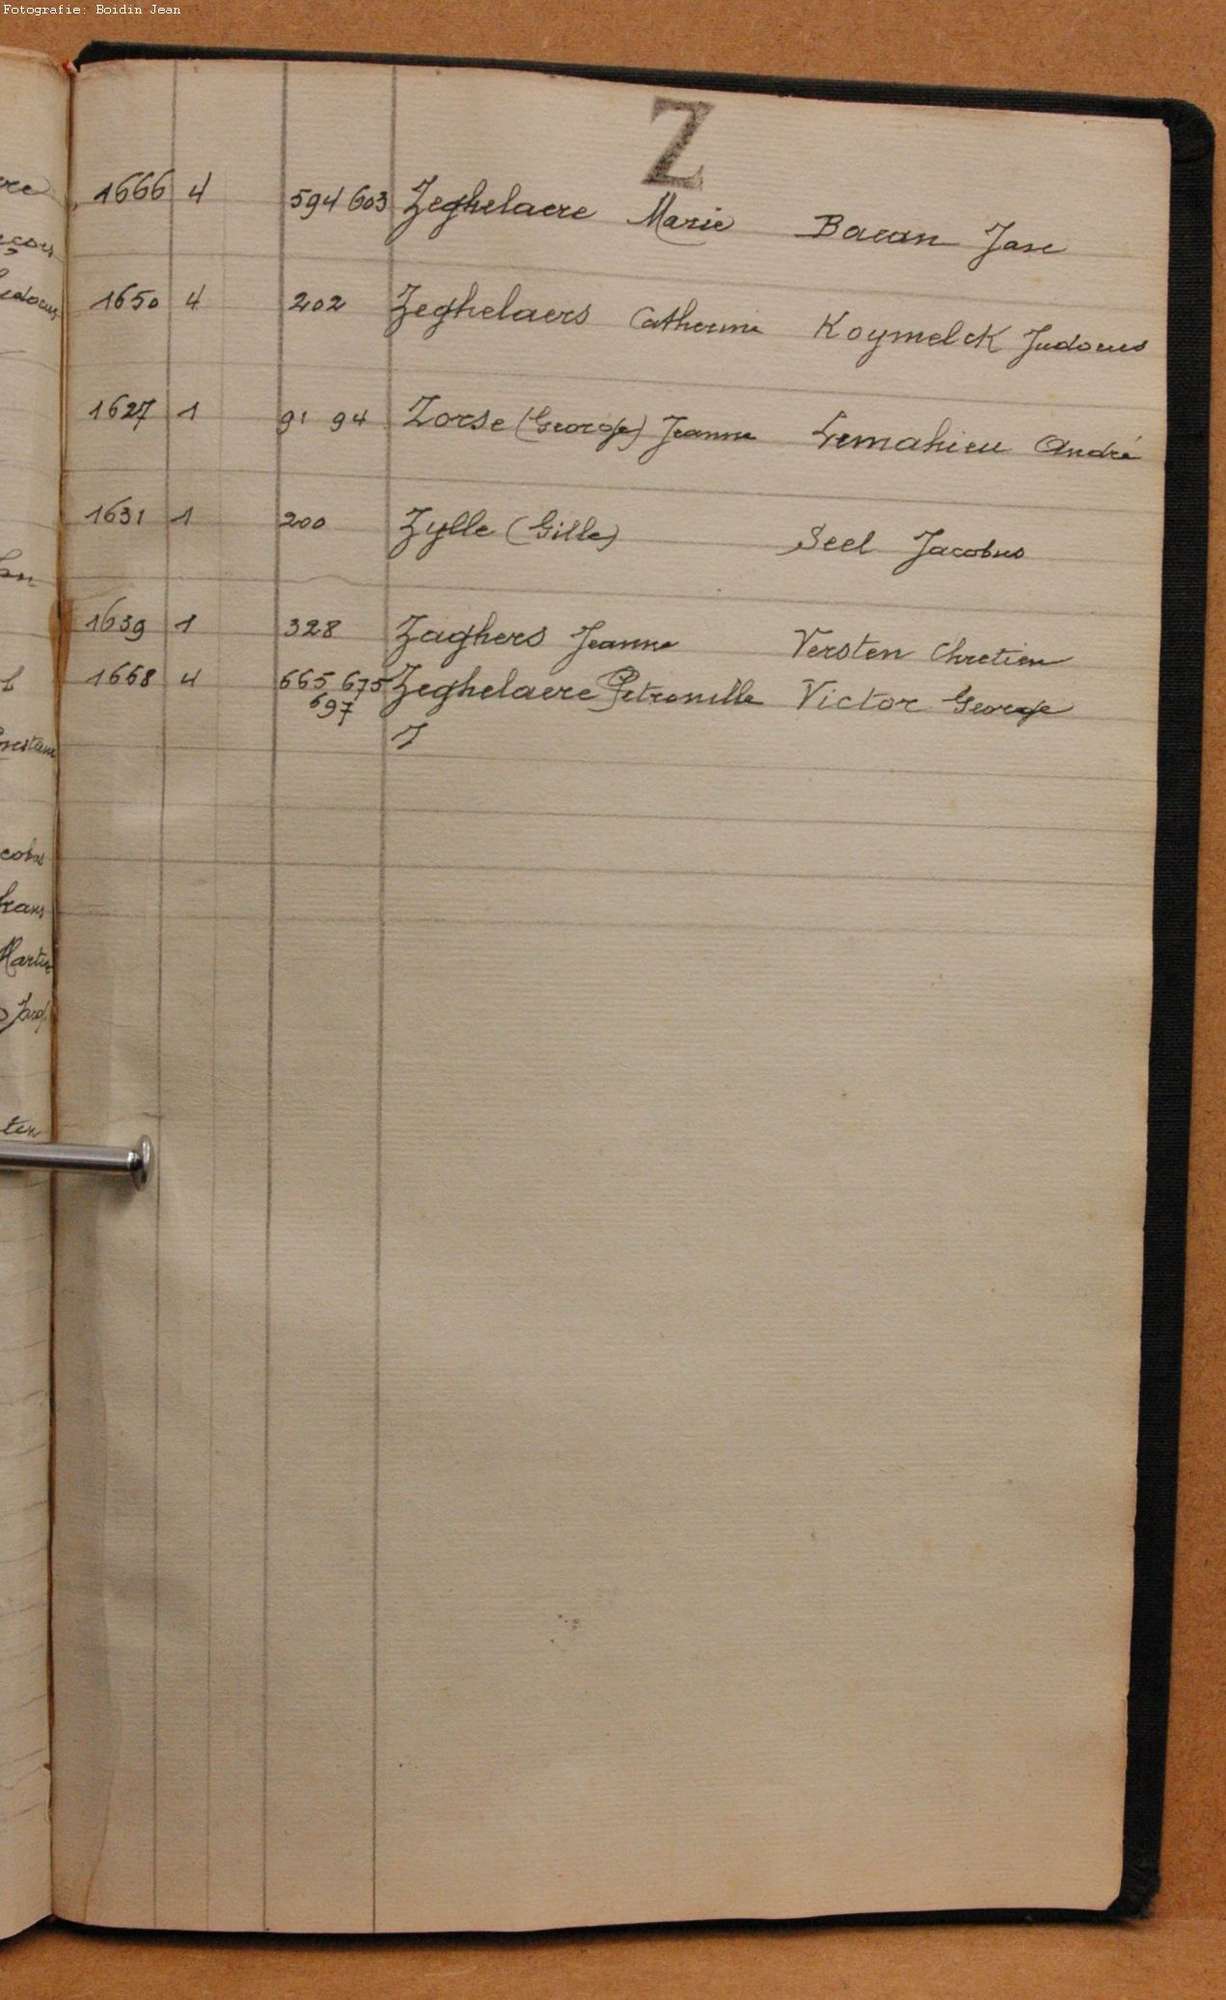 Fotografie: Boidin Jean
Z
1666 4 594 603 Zeghelaere Marie Bacan Jase
1650 4 202 Zeghelaers Catherine Koymelck Judocus
1627 1 91 94 Zorse (George) Jeanne Lemahieu André
1631 1 200 Zylle (Gille) Seel Jacobus
1639 1 328 Zaghers Jeanne Versten Chretien
1668 4 665 675 Zeghelaere Petronille Victor George
697